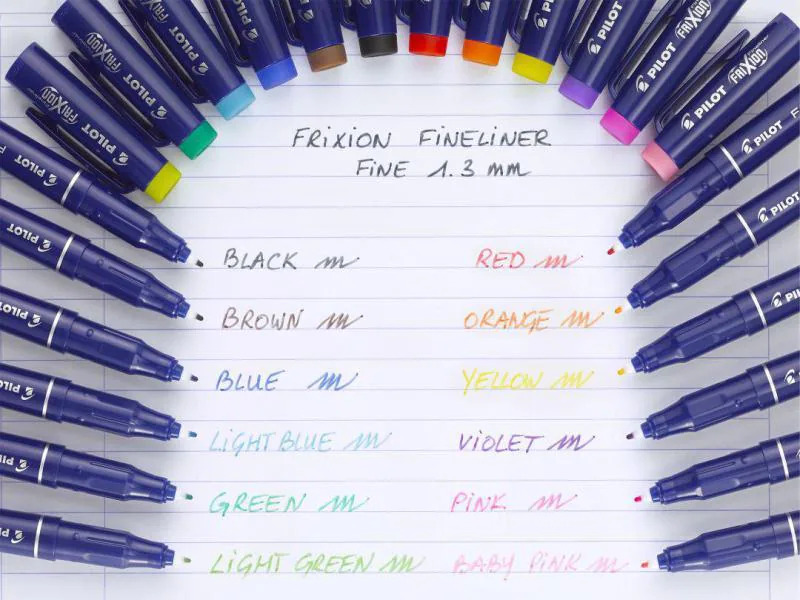 FRiXION FINELINER
FiNE 1.3 mm
BLACK
BROWN
BLUE
LiGHT BLUE
GREEN
LiGHT GREEN
RED
ORANGE
YELLOW
ViOLET
PiNK
BABY PiNK
PILOT
FRIXION
PILOT
FRIXION
PILOT
FRIXION
PILOT
PILOT
PILOT
FRIXION
PILOT
FRIXION
PILOT
PILOT
PILOT
PILOT
PILOT
PILOT
PILOT
PILOT
PILOT